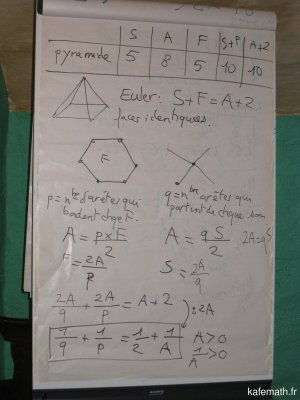 S A F S+F A+2
pyramide 5 8 5 10 10
Euler: S+F=A+2.
faces identiques.
F
p=n^bre d'arêtes qui
bordent chqe F.
q=n^bre arêtes qui
partent de chaque som
A = pxF/2
A = qS/2 2A=qS
F = 2A/p
S = 2A/q
2A/q + 2A/p = A+2
:2A
1/q + 1/p = 1/2 + 1/A
A>0
1/A>0
kafemath.fr